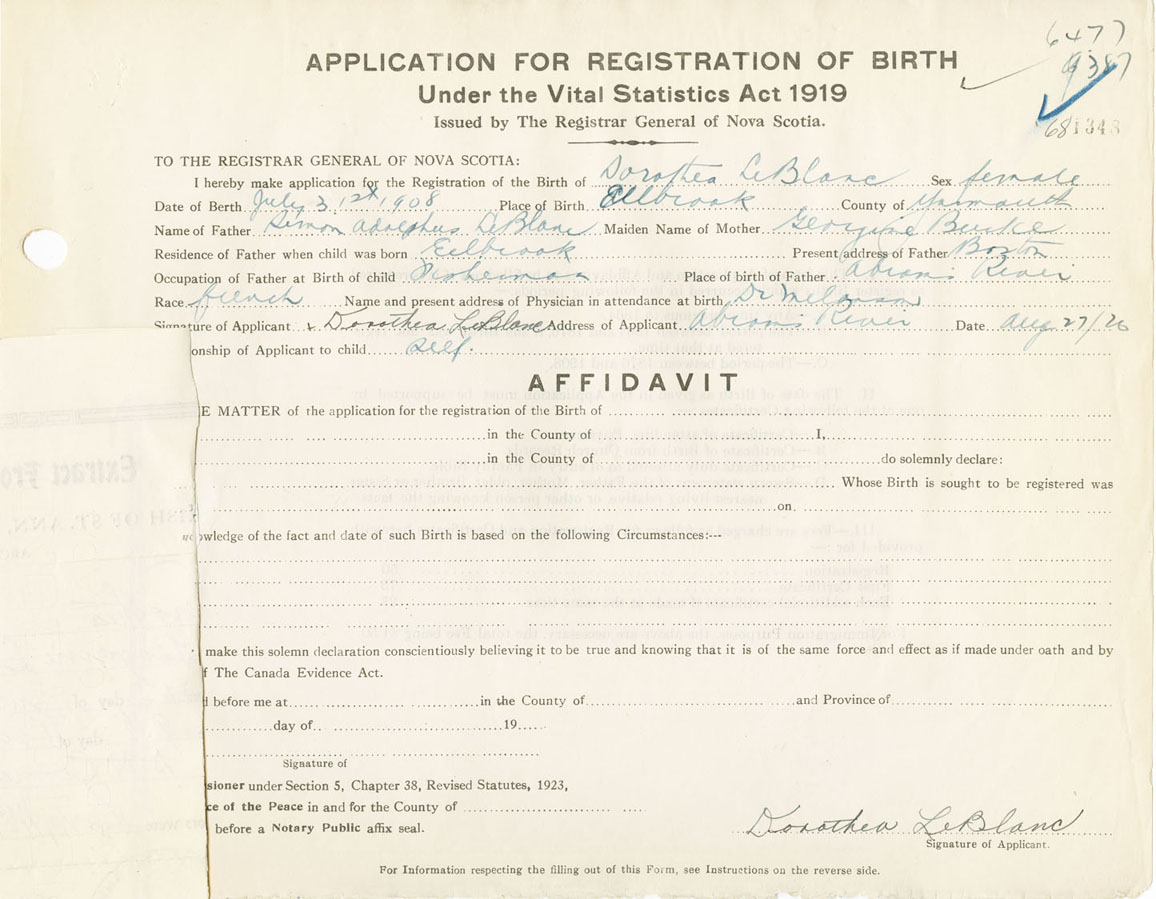 6477
9387
681348
APPLICATION FOR REGISTRATION OF BIRTH
Under the Vital Statistics Act 1919
Issued by The Registrar General of Nova Scotia.
TO THE REGISTRAR GENERAL OF NOVA SCOTIA:
I hereby make application for the Registration of the Birth of Dorothea LeBlanc Sex female
Date of Berth July 31st, 1908 Place of Birth Eelbrook County of Yarmouth
Name of Father Simon Adolphus LeBlanc Maiden Name of Mother Georgine Burke
Residence of Father when child was born Eelbrook Present address of Father Boston
Occupation of Father at Birth of child Fisherman Place of birth of Father Abrams River
Race french Name and present address of Physician in attendance at birth Dr Melanson
Signature of Applicant Dorothea LeBlanc Address of Applicant Abrams River Date Aug 27/26
onship of Applicant to child self.
AFFIDAVIT
E MATTER of the application for the registration of the Birth of
in the County of I,
in the County of do solemnly declare:
Whose Birth is sought to be registered was
on
wledge of the fact and date of such Birth is based on the following Circumstances:--
make this solemn declaration conscientiously believing it to be true and knowing that it is of the same force and effect as if made under oath and by
f The Canada Evidence Act.
before me at in the County of and Province of
day of 19
Signature of
sioner under Section 5, Chapter 38, Revised Statutes, 1923,
ce of the Peace in and for the County of
before a Notary Public affix seal.
Dorothea LeBlanc
Signature of Applicant.
For Information respecting the filling out of this Form, see Instructions on the reverse side.